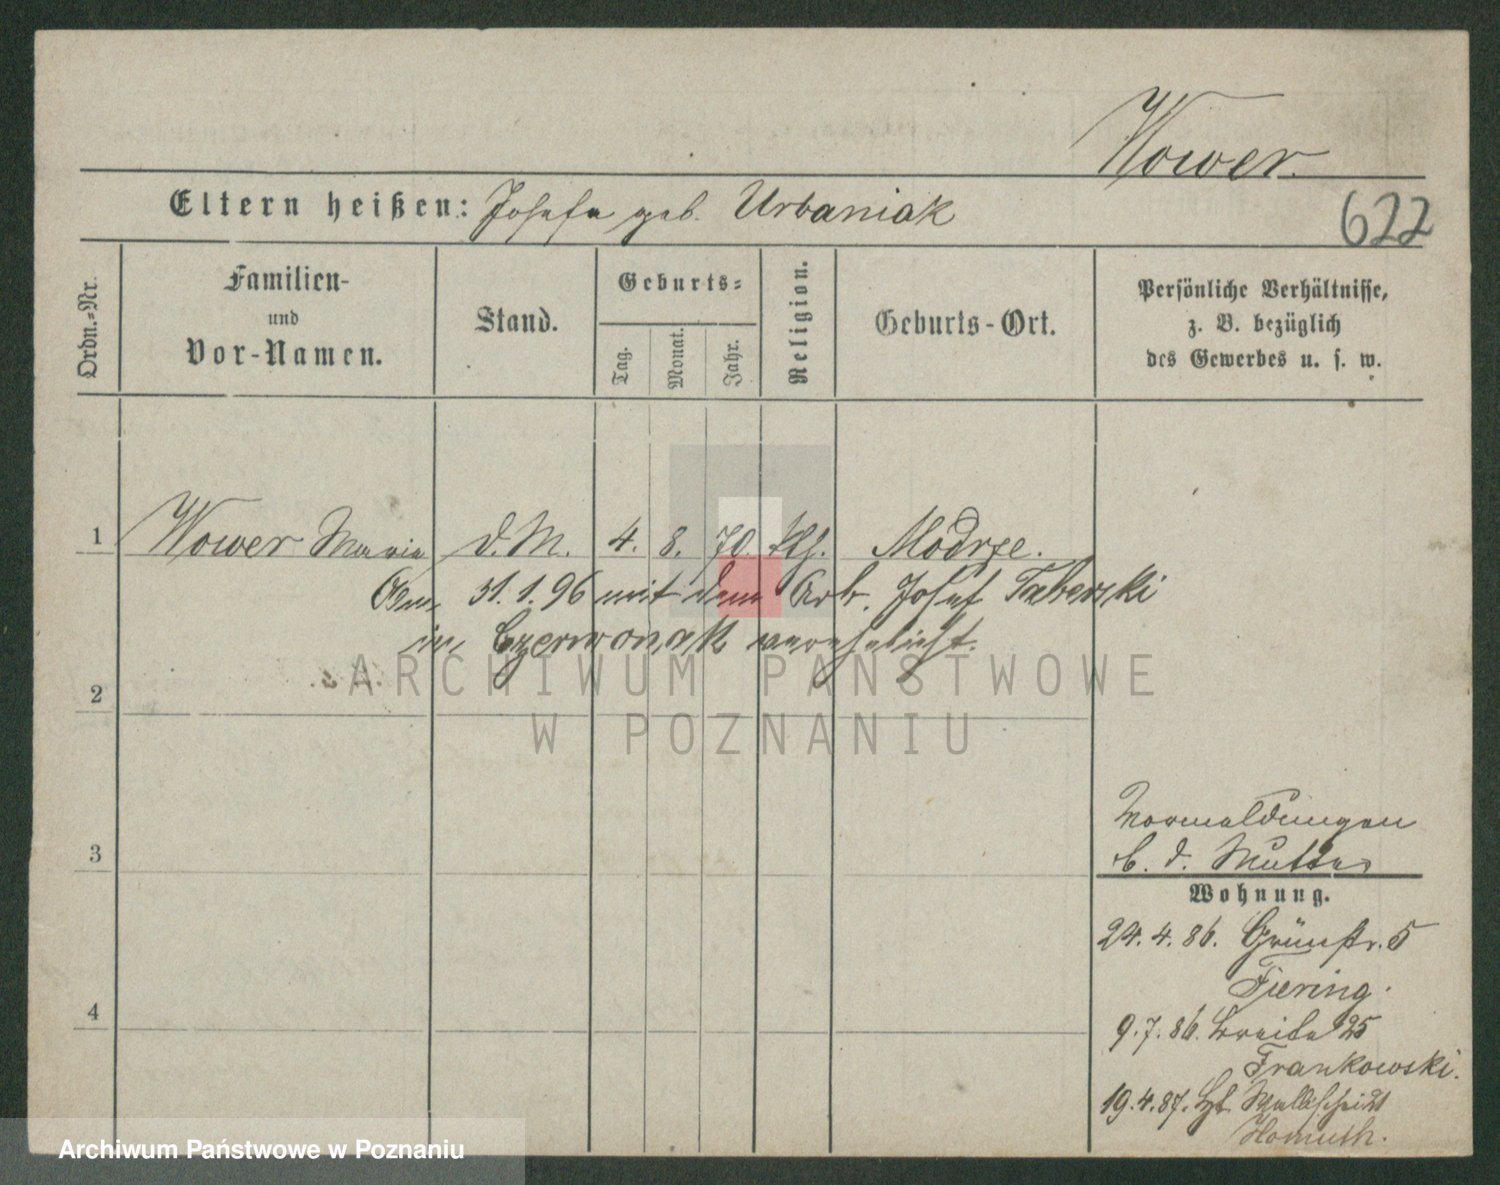 Wower.
Eltern heißen: Josefa geb. Urbaniak
622
Ordn.-Nr.
Familien-
und
Vor-Namen.
Stand.
Geburts-
Tag.
Monat.
Jahr.
Religion.
Geburts-Ort.
Persönliche Verhältnisse,
z. B. bezüglich
des Gewerbes u. s. w.
1 Wower Maria d. M. 4. 8. 70. kth. Modrze.
Am 31. 1. 96 mit dem Arb. Josef Taberski
in Czerwonak verehelicht.
2
3
4
Vormeldungen
b. d. Mutter
Wohnung.
24. 4. 86. Grünstr. 5
Fiering.
9. 7. 86. Breite 25
Frankowski.
19. 4. 87. 21
Homuth.
ARCHIWUM PAŃSTWOWE
W POZNANIU
Archiwum Państwowe w Poznaniu